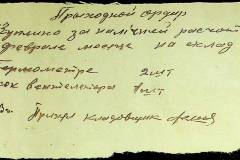 Приходной ордер
Куплено за наличный расчет
феврале месяце на склад
Термометре 2 шт
вентелятора 1 шт
Принял кладовщик